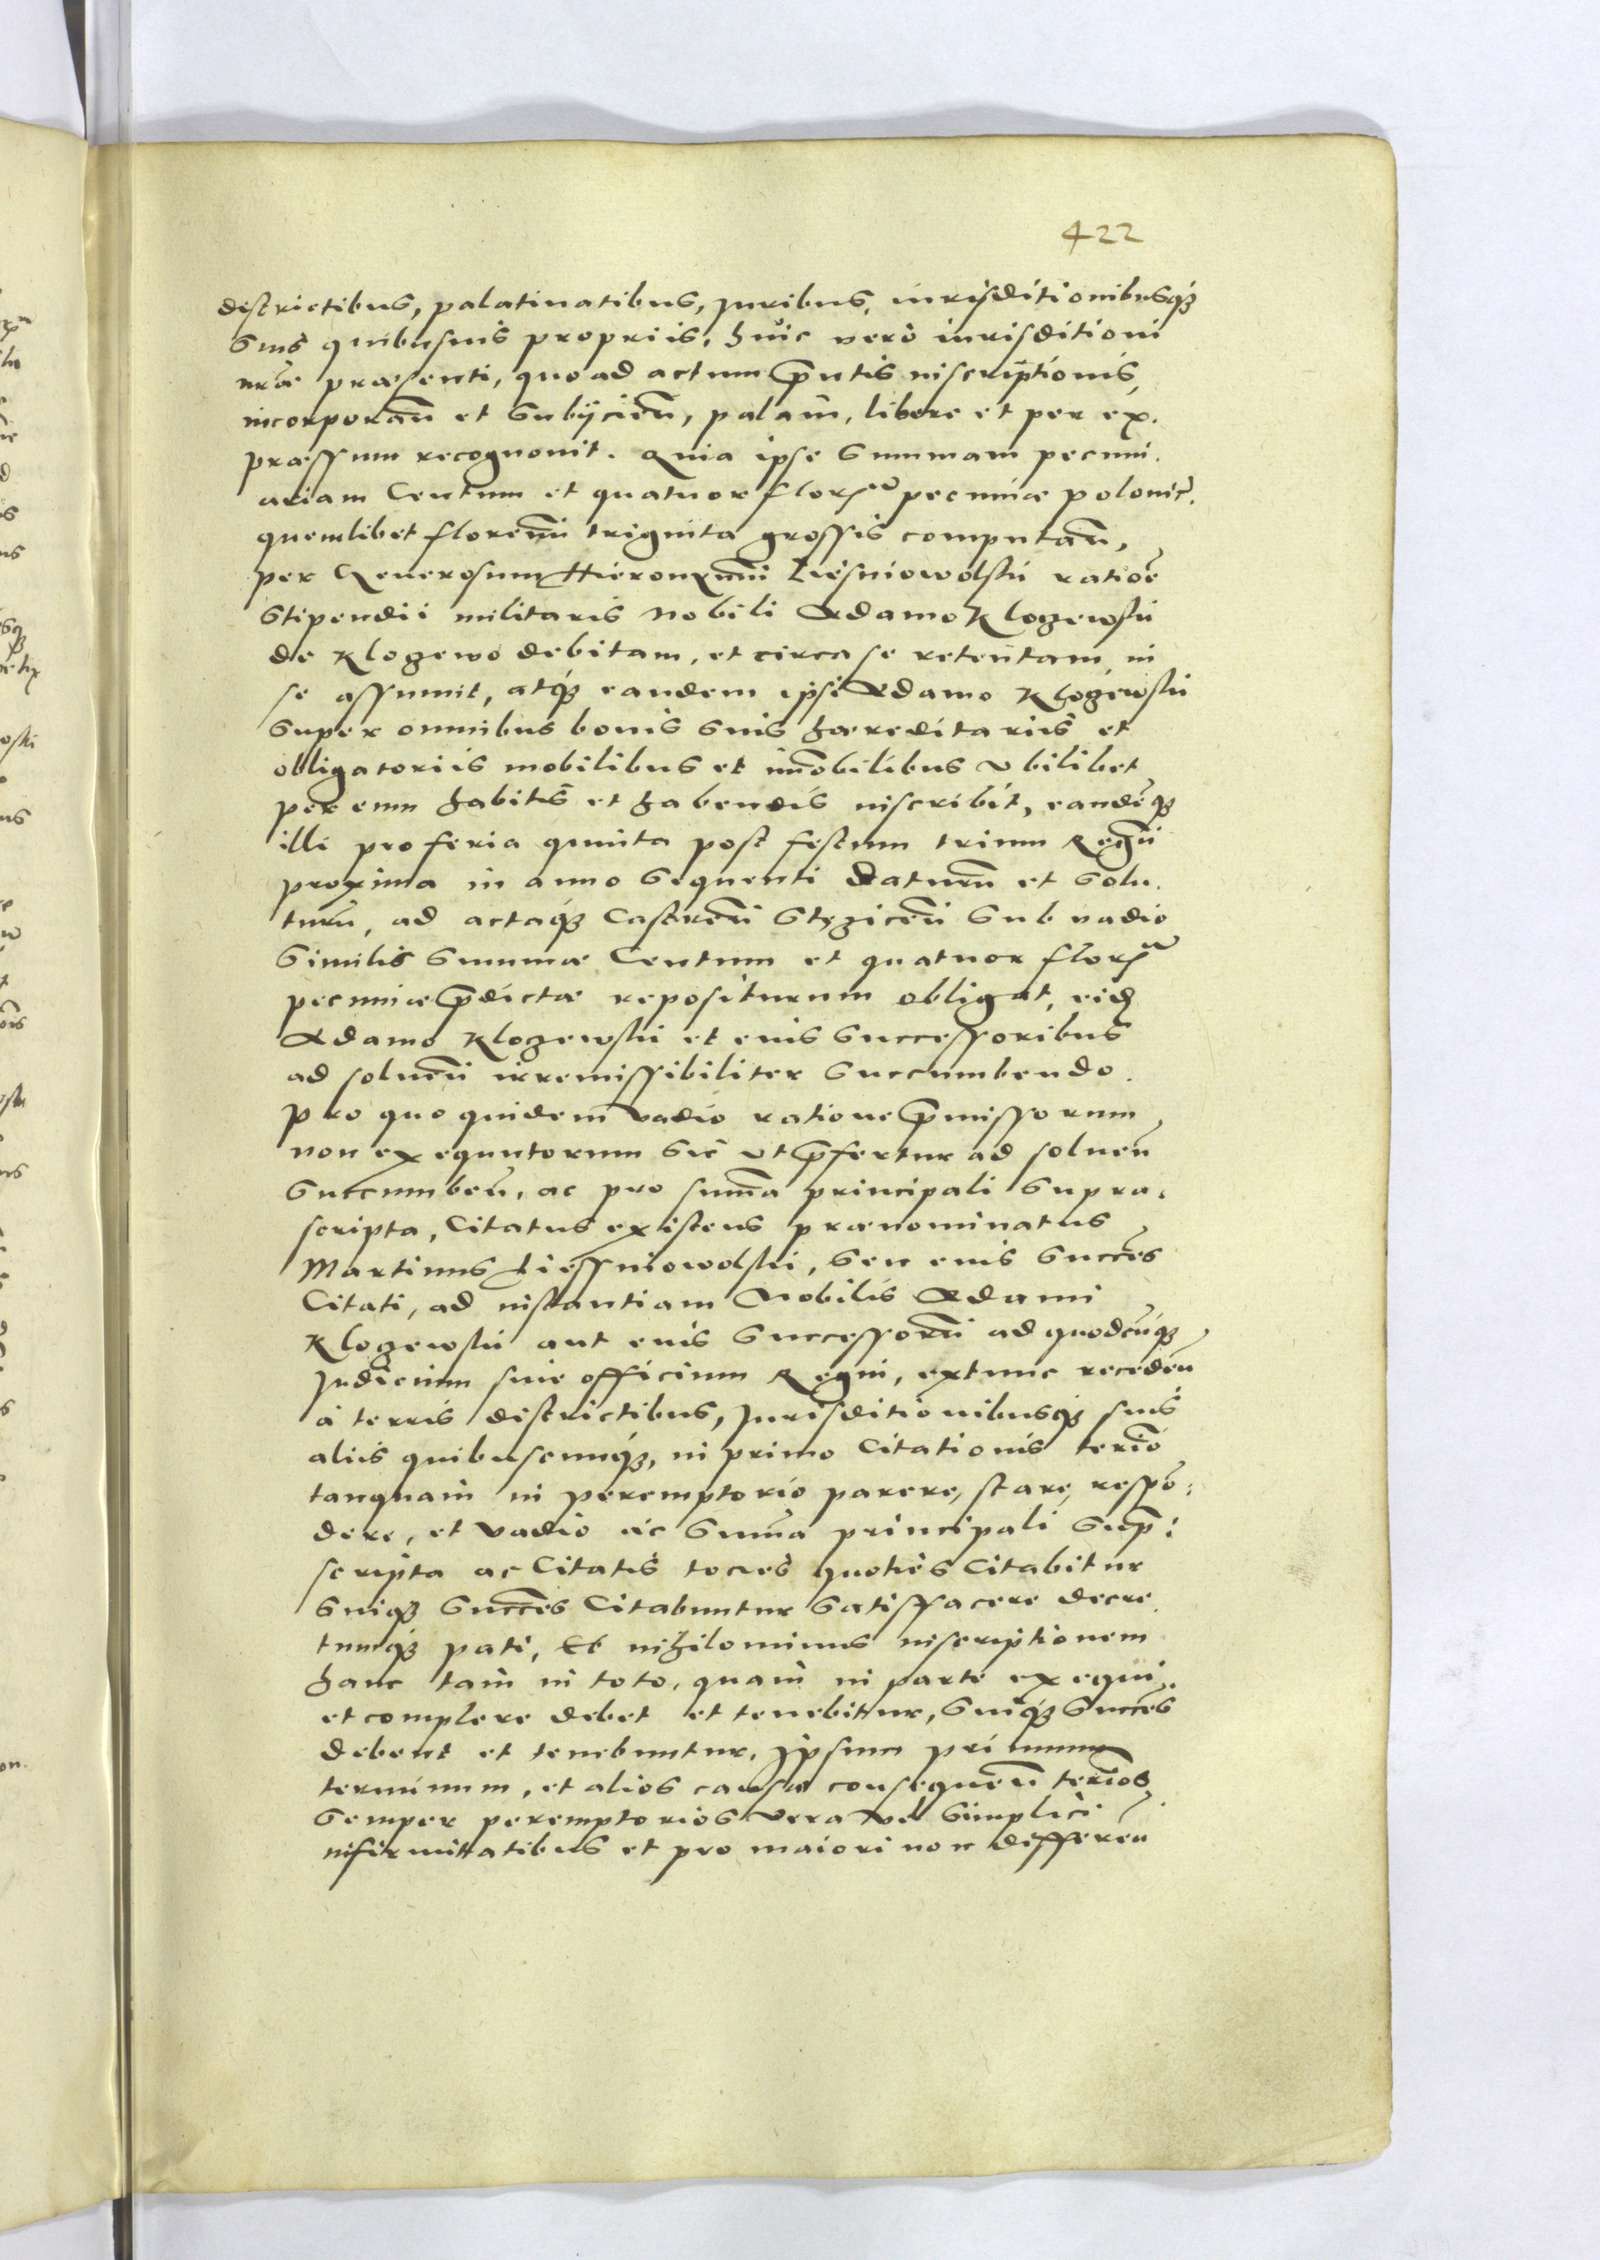 422
districtibus, palatinatibus, juribus, iurisditionibusq3
suis quibusuis propriis, huic verò iurisditioni
nrae praesenti, quo ad actum pñtis inscriptionis,
incorporañ et subÿcieñ, palam, libere et per ex.
praessum recognovit. Quia ipse summam pecuni.
ariam Centum et quatuor flor. pecuniae polonic.
quemlibet floreñ triginta grossis computañ,
per Generosum Hieronymũ Liesniowolski ratioe
stipendii militaris Nobili Adamo Klogewski
de Klogewo debitam, et circa se retentam, in
se assumit, atq3 eandem ipsi Adamo Klogewski
super omnibus bonis suis haereditariis et
obligatoriis mobilibus et imobilibus ubilibet
per eum habitis et habendis inscribit, eandẽq3
illi pro feria quinta post festum trium Regũ
proxima in anno sequenti daturũ et solu.
turũ, ad actaq3 Castreñ Steziceñ sub vadio
similis summae Centum et quatuor flor.
pecuniae p̃dictae repositurum obligat, eid
Adamo Klogewski et eius successoribus
ad solueñ irremissibiliter succumbendo.
Pro quo quidem vadio ratione p̃missorum
non exequutorum sic ut p̃fertur ad solueñ
succumbeñ, ac pro suma principali supra.
scripta, Citatus existens praenominatus
Martinus Liessniowolski, seu eius succẽs
Citati, ad instantiam Nobilis Adami
Klogewski aut eius successorũ ad quodcũq3
Judicium siue officium Regni, extunc recedeñ
à terris districtibus, Jurisditionibusq3 suis
aliis quibuscunq3, in primo Citationis terio
tanquam in peremptorio parere, stare, respõ:
dere, et vadio ac suma principali sup:
scripta ac Citatis tocies quoties Citabitur
suiq3 succẽs Citabuntur satisfacere decre
tumq3 pati, Et nihilominus inscriptionem
hanc tam in toto, quam in parte exequi
et complere debet et tenebitur, suiq3 succẽs
debent et tenebuntur. Ipsum primum
terminum, et alios causa consequeñ terios
semper peremptorios vera vel simplici
infirmitatibus et pro maiori non differeñ